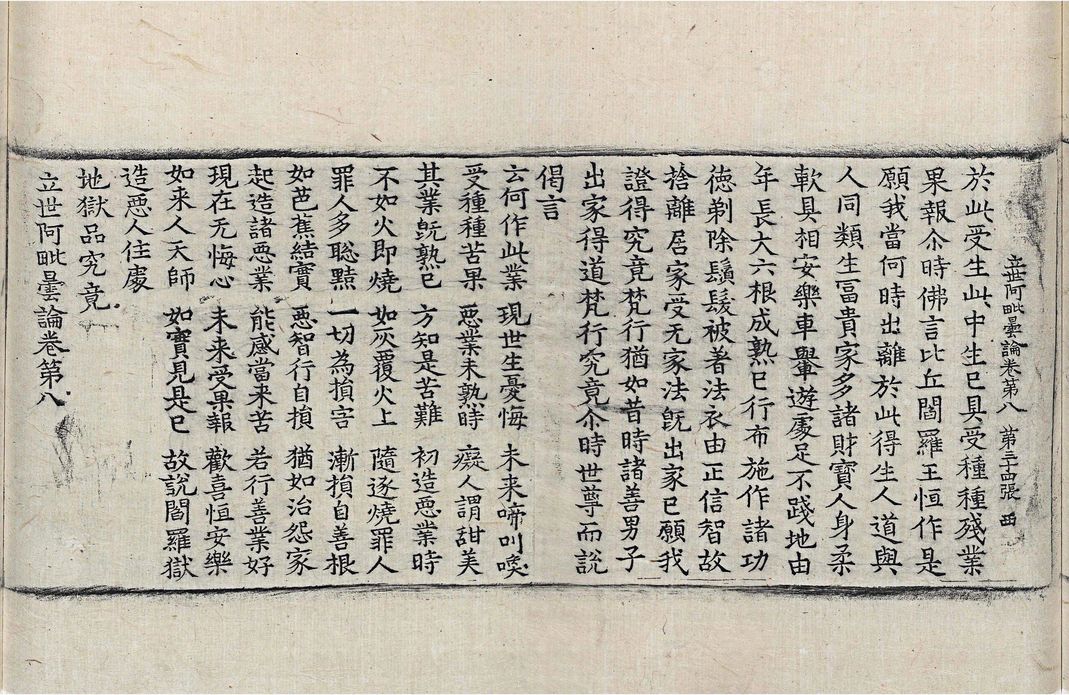 立世阿毗曇論卷第八 第二十四張 西
於此受生此中生已具受種種殘業
果報尒時佛言比丘閻羅王恒作是
願我當何時出離於此得生人道與
人同類生富貴家多諸財寶人身柔
軟具相安樂車轝遊處足不踐地由
年長大六根成熟已行布施作諸功
德剃除鬚髮被著法衣由正信智故
捨離居家受无家法旣出家已願我
證得究竟梵行猶如昔時諸善男子
出家得道梵行究竟尒時世尊而說
偈言
云何作此業 現世生憂悔 未来啼叫喚
受種種苦果 惡業未熟時 癡人謂甜美
其業旣熟已 方知是苦難 初造惡業時
不如火即燒 如灰覆火上 隨逐燒罪人
罪人多聡黠 一切為損害 漸損自善根
如芭蕉結實 惡智行自損 猶如治怨家
起造諸惡業 能感當来苦 若行善業好
現在无悔心 未来受果報 歡喜恒安樂
如来人天師 如實見是已 故說閻羅獄
造惡人住處
地獄品究竟
立世阿毗曇論卷第八